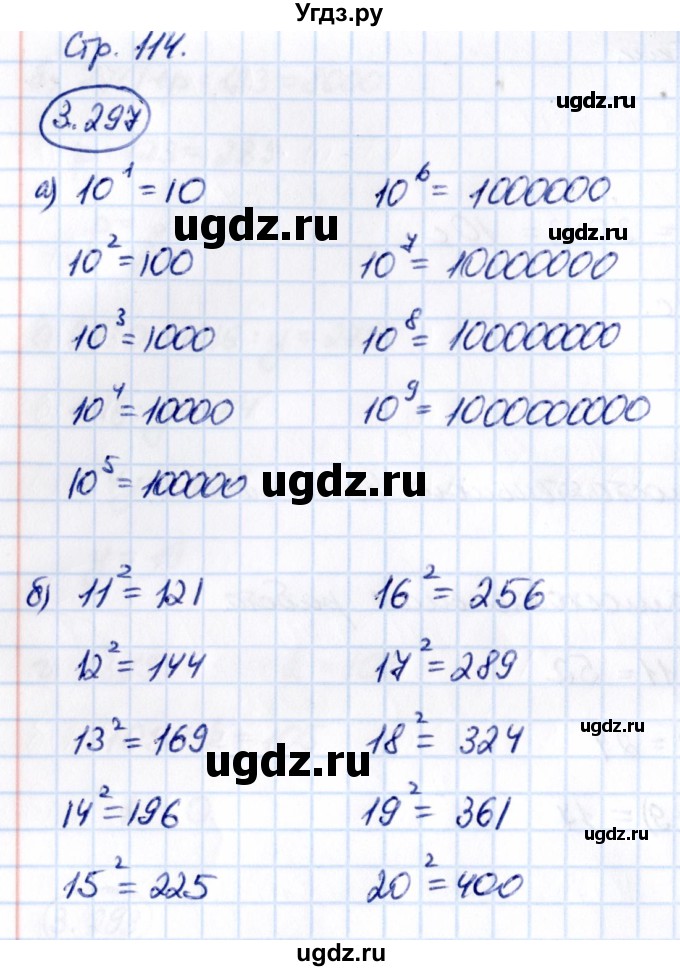 Угдз.ру
Стр. 114.
ugdz.ru
3.297
а) 10¹ = 10
10⁶ = 1000000
ugdz.ru
ugdz.ru
10² = 100
10⁷ = 10000000
10³ = 1000
10⁸ = 100000000
10⁴ = 10000
10⁹ = 1000000000
10⁵ = 100000
ugdz.ru
б) 11² = 121
16² = 256
12² = 144
17² = 289
13² = 169
18² = 324
ugdz.ru
ugdz.ru
14² = 196
19² = 361
ugdz.ru
15² = 225
20² = 400
ugdz.ru